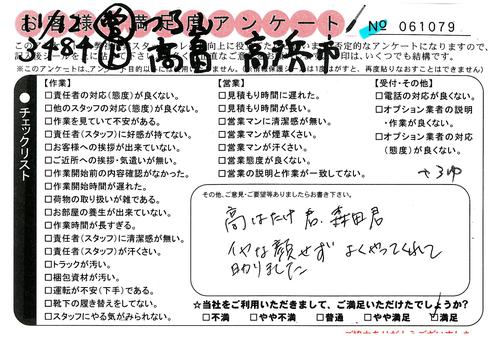 お客様満足度アンケート
№ 061079
11/12
3484
高畠 高浜市
チェックリスト
【作業】
□責任者の対応(態度)が良くない。
□他のスタッフの対応(態度)が良くない。
□作業を見ていて不安がある。
□責任者(スタッフ)に好感が持てない。
□お客様への挨拶が出来ていない。
□ご近所への挨拶・気遣いが無い。
□作業開始前の内容確認がなかった。
□作業開始時間が遅れた。
□荷物の取り扱いが雑である。
□お部屋の養生が出来ていない。
□作業時間が長すぎる。
□責任者(スタッフ)に清潔感が無い。
□責任者(スタッフ)が汗くさい。
□トラックが汚い。
□梱包資材が汚い。
□運転が不安(下手)である。
□靴下の履き替えをしてない。
□スタッフにやる気がみられない。
【営業】
□見積もり時間に遅れた。
□見積もり時間が長い。
□営業マンに清潔感が無い。
□営業マンが煙草くさい。
□営業マンが汗くさい。
□営業態度が良くない。
□営業の説明と作業が一致してない。
【受付・その他】
□電話の対応が良くない。
□オプション業者の説明
・作業が良くない。
□オプション業者の対応
(態度)が良くない。
その他、ご意見・ご要望等ありましたらお書き下さい。
高はたけ君、森田君
イヤな顔せず よくやってくれて
助りました
☆当社をご利用いただきまして、ご満足いただけたでしょうか?
□不満 □やや不満 □普通 □やや満足 □満足